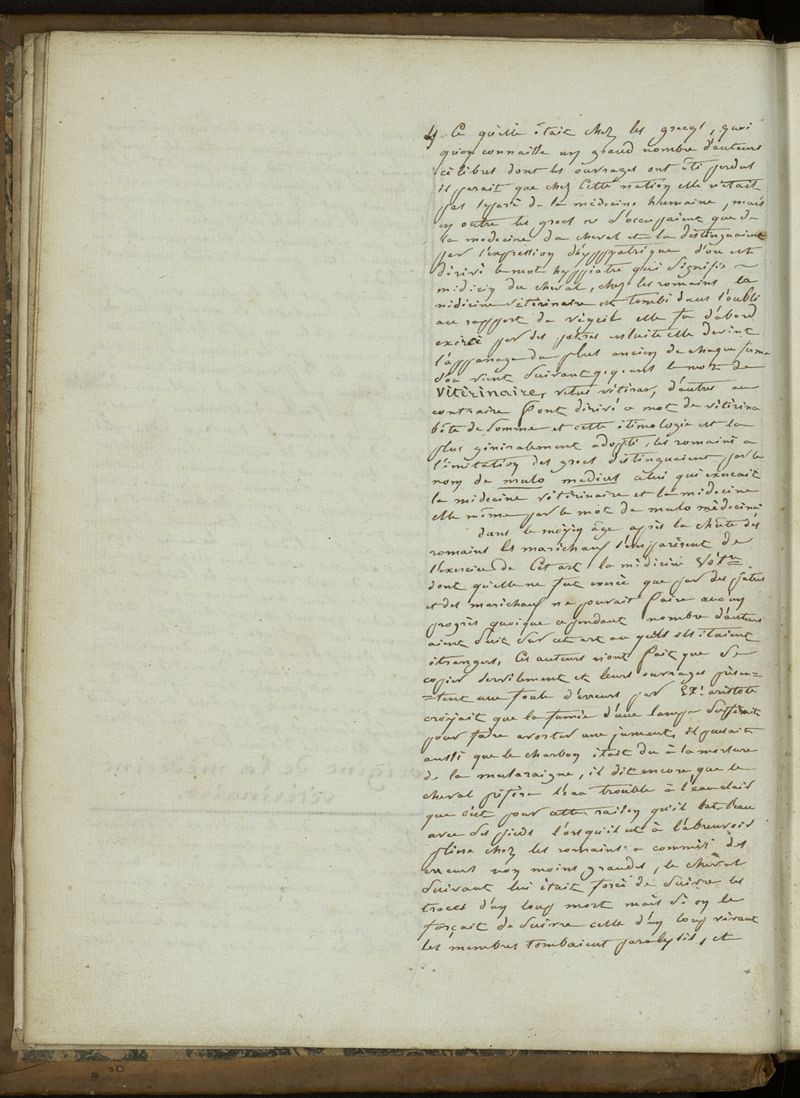 4 Ce qu'elle était chez les grecs, quoi
qu'on connaisse un grand nombre d'auteurs
célèbres dont les ouvrages ont été perdus
il parait que chez cette nation elle n'était
pas séparé de la médecine humaine, mais
en outre les grecs ne s'occupaient que de
la medecine du cheval et la distinguaient
par l'expression d'yppyatrique d'ou est
dérivé le mot hyppiatre qui signifie
médecin du cheval, chez les romains la
médecine vétérinaire est tombé dans l'oubli
au rapport de végéce elle fu d'abord
exércé par des patres ensuite elle devint
l'appanage du plus ancien de chaque ferme
d'ou vient suivant q.q. uns le nom de
vétérinaire, vetus vétérinar, d'autres au
contraire l'ont dérivé ce mot de vétérina
bête de somme et cette étimologie est la
plus généralement adopté, les romains a
l'imitation des grecs distinguaient par le
nom de mulo medicus celui qui exercait
la médecine vétérinaire et la médecine
elle même par le mot de mulo médecina
dans le moyen âge après la chute des
romains les marichaux s'emparèrent de
l'exercice de cet art la médecine vétre
dont qu'elle ne fut exercé que par des patres
et des marichaux ne pouvait faire aucun
progrès quoique cependant nombre d'auteurs
aient écrit sur cet art au quels ils étaient
étrangers, ces auteurs n'ont fait que se
copier servilement et leurs ouvrages présen=
=tent une foule d'erreurs par Ex: aristote
croyait que la fumée d'une lampe suffisait
pour faire avorter une jument, il pensait
aussi que le charbon était du à la morsure
de la musaraigne, il dit encore que le
cheval préfère l'eau trouble à l'eau clair
que c'est pour cette raison qu'il bat l'eau
avec ses pieds l'orsqu'il est à l'abreuvoir
pline chez les romains a commis des
erreurs non moins grandes, le cheval
suivant lui était forcé de suivre les
traces d'un loup mort mais si on le
forçait de suivre celle d'un loup vivant
les membres tombaient paralysés, et